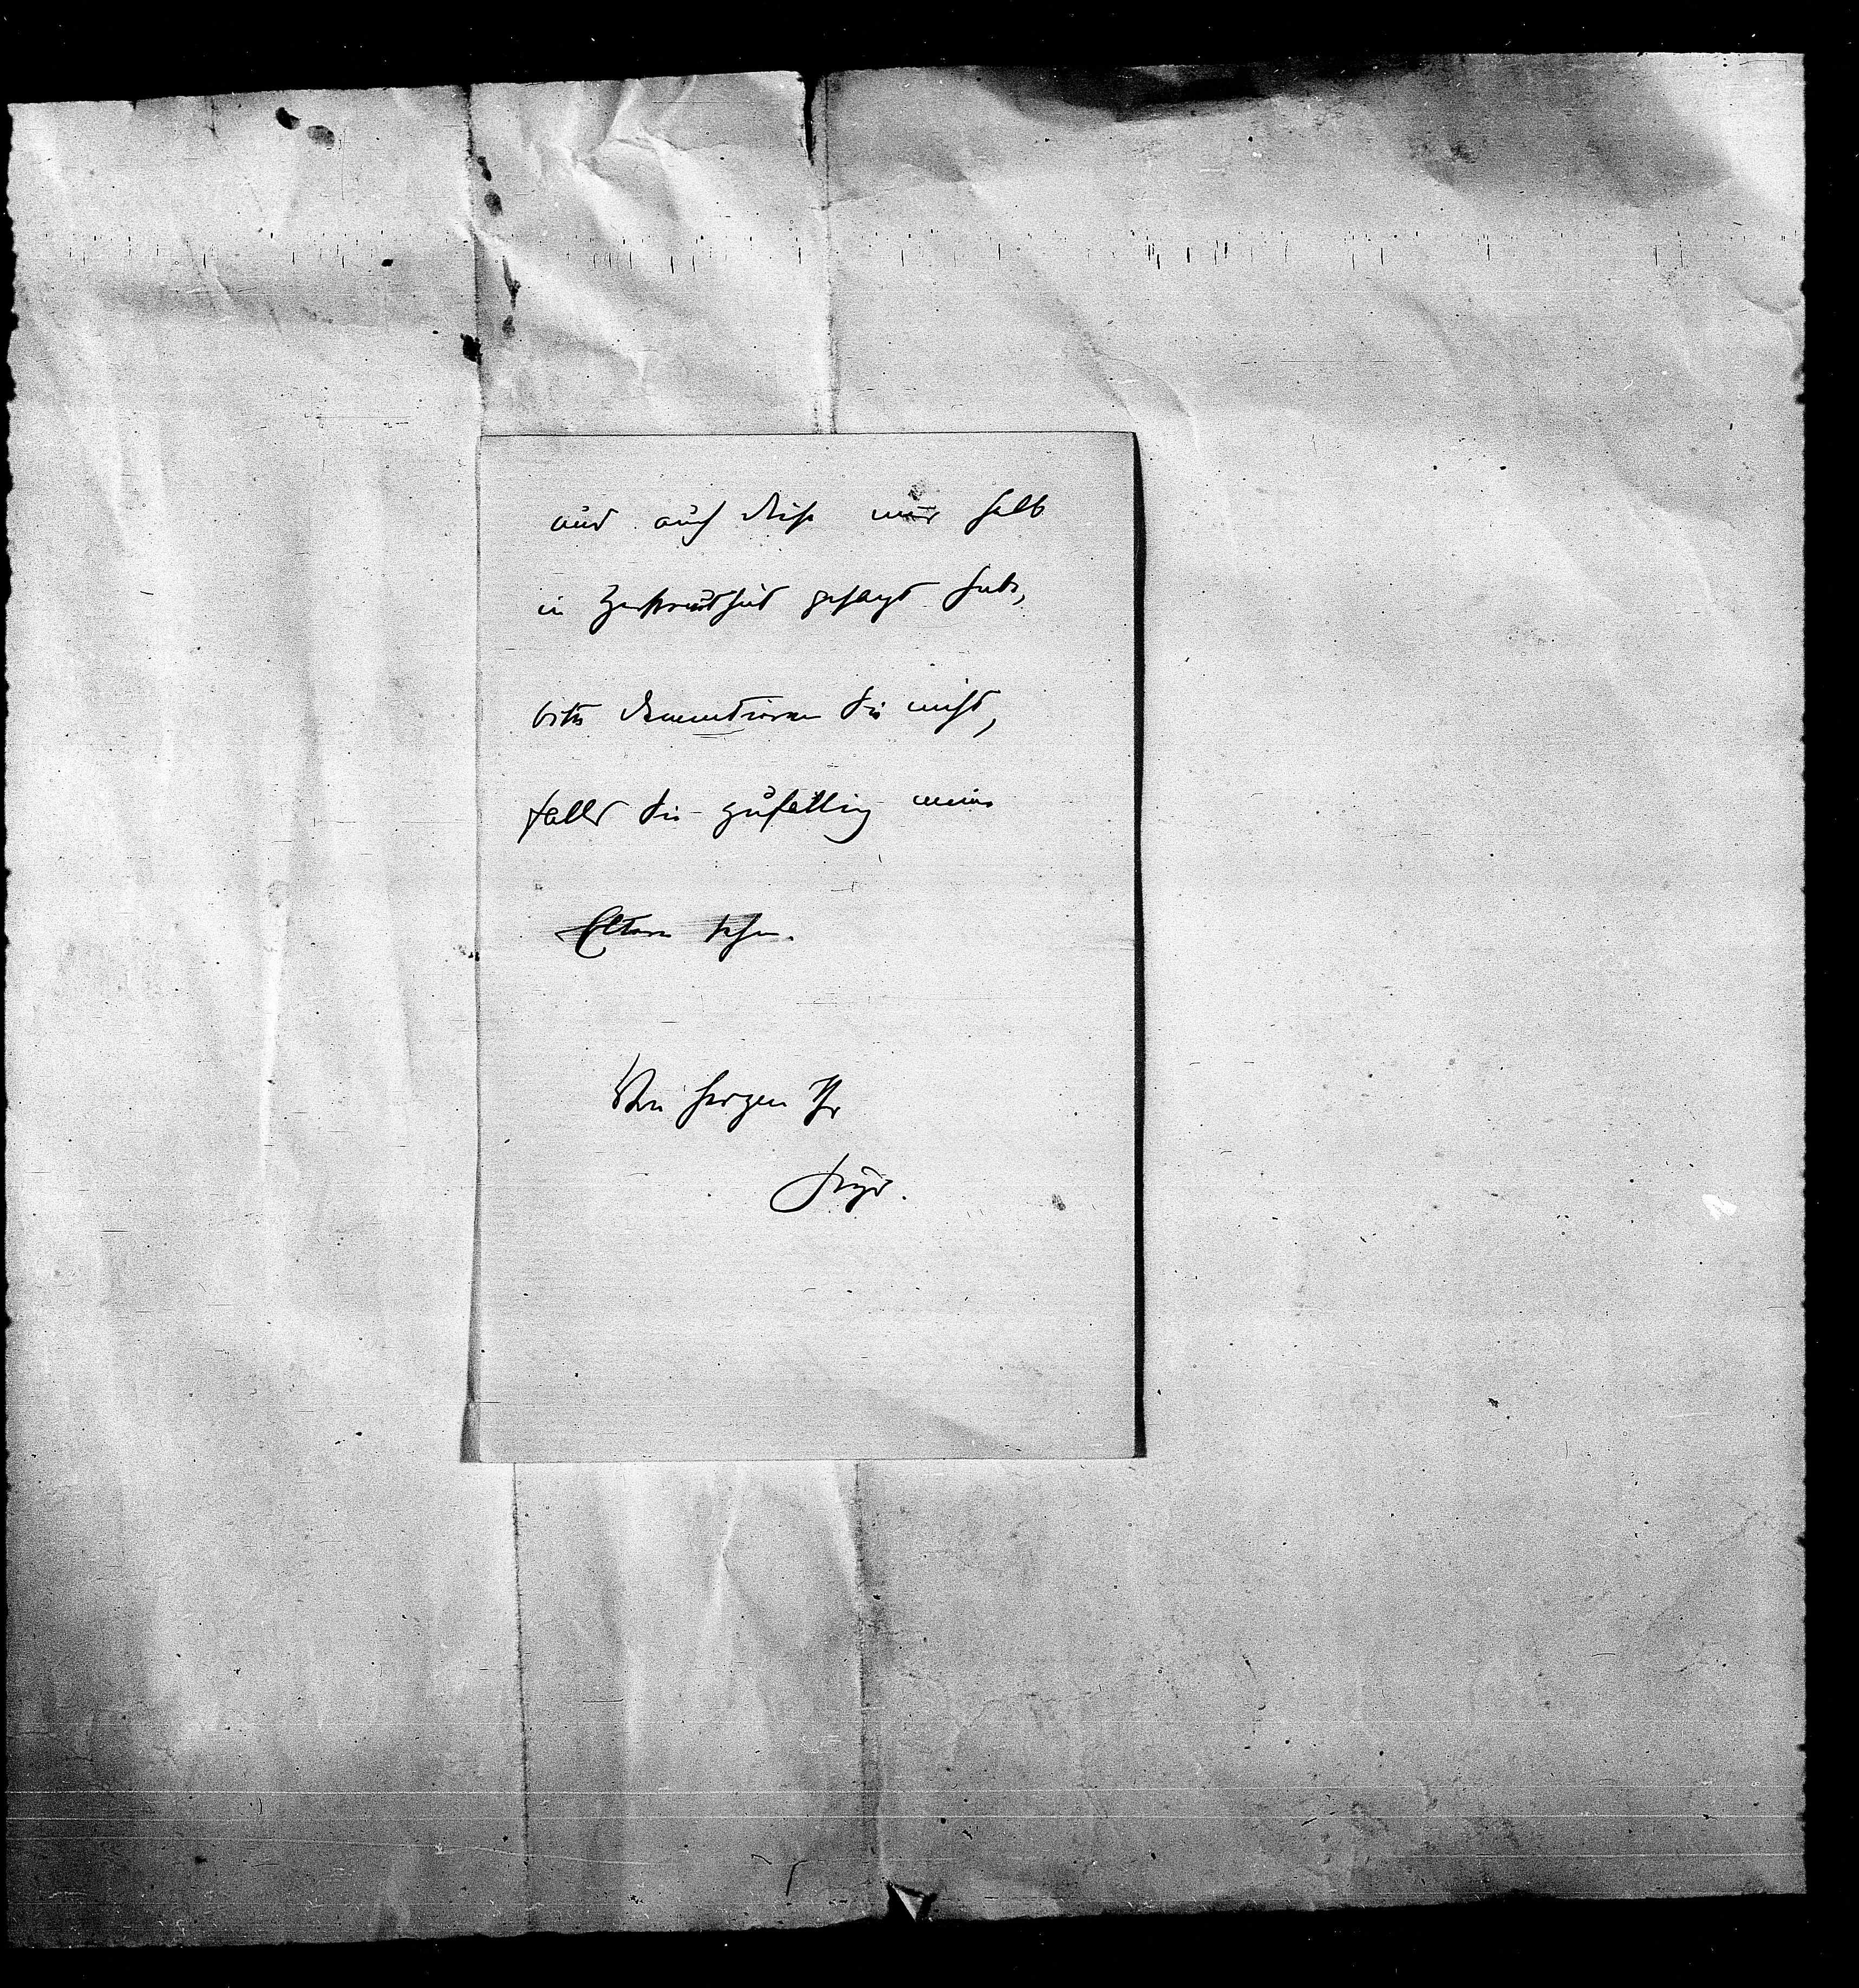 und auch diese nur halb
in Zerstreutheit gesagt habe,
bitte dementieren Sie nicht,
falls Sie zufällig meine
Eltern sehen.
Von Herzen Ihr
Hugo.